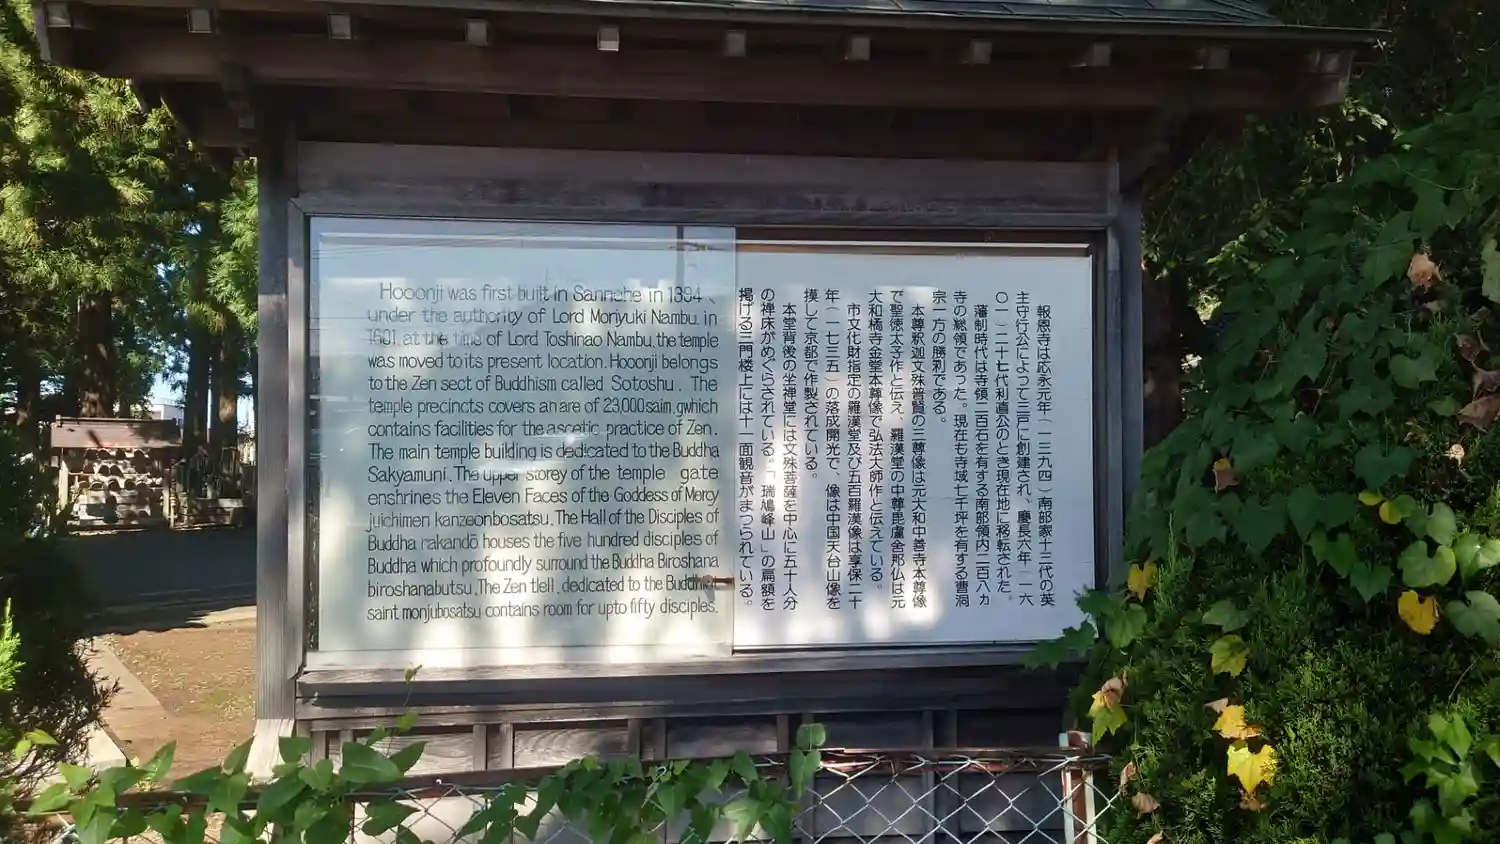 Hooonji was first built in Sannohe in 1394 、
under the authority of Lord Moriyuki Nambu. in
1601, at the time of Lord Toshinao Nambu, the temple
was moved to its present location. Hooonji belongs
to the Zen sect of Buddhism called Sotoshu. The
temple precincts covers an are of 23,000saim, gwhich
contains facilities for the ascetic practice of Zen.
The main temple building is dedicated to the Buddha
Sakyamuni. The upper storey of the temple gate
enshrines the Eleven Faces of the Goddess of Mercy
juichimen kanzeonbosatsu. The Hall of the Disciples of
Buddha rakandō houses the five hundred disciples of
Buddha which profoundly surround the Buddha Biroshana
biroshanabutsu. The Zen tlell, dedicated to the Buddhist
saint monjubosatsu contains room for upto fifty disciples.
報恩寺は応永元年（一三九四）南部家十三代の英
主守行公によって三戸に創建され、慶長六年（一六
〇一）二十七代利直公のとき現在地に移転された。
藩制時代は寺領二百石を有する南部領内二百八ヵ
寺の総領であった。現在も寺域七千坪を有する曹洞
宗一方の勝刹である。
本尊釈迦文殊普賢の三尊像は元大和中善寺本尊像
で聖徳太子作と伝え、羅漢堂の中尊毘盧舎那仏は元
大和橘寺金堂本尊像で弘法大師作と伝えている。
市文化財指定の羅漢堂及び五百羅漢像は享保二十
年（一七三五）の落成開光で、像は中国天台山像を
摸して京都で作製されている。
本堂背後の坐禅堂には文殊菩薩を中心に五十人分
の禅床がめぐらされている。「瑞鳩峰山」の扁額を
掲げる三門楼上には十一面観音がまつられている。